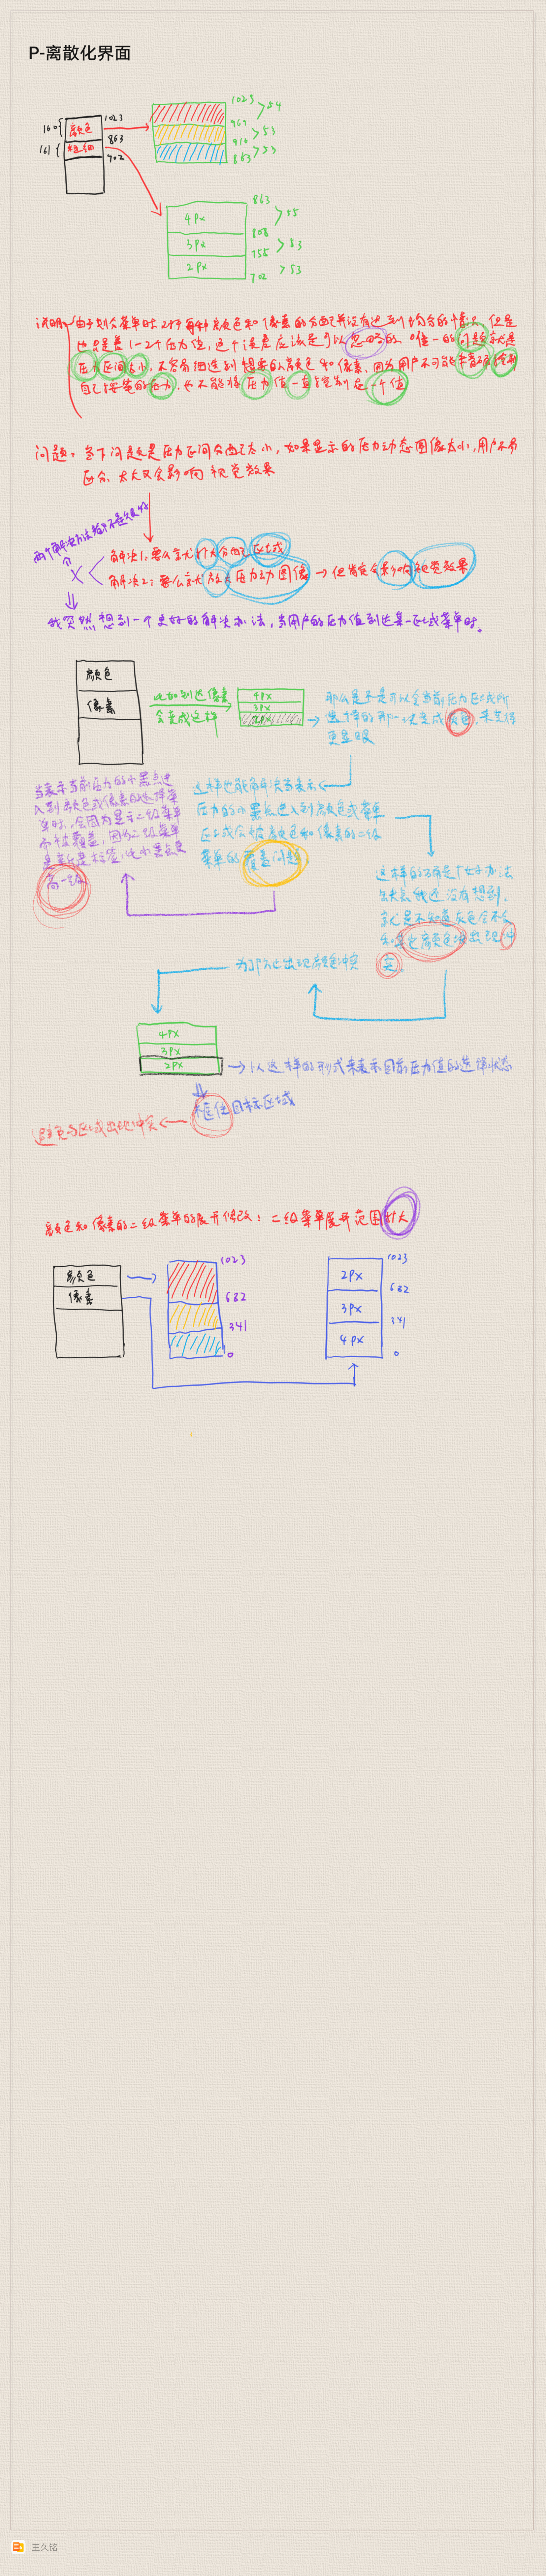 P-离散化界面
160 { 颜色 1023
161 { 粗细 863
702
1023 > 54
969 > 53
916 > 53
863
863 > 55
4px
808 > 53
3px
755 > 53
2px
702
说明: 由于划分菜单时 2对于每种颜色和像素的分配并没有达到均分的情况, 但是
也只是差1-2个压力值, 这个误差应该是可以忽略的, 唯一的问题就是
压力区间太小, 不容易细选到想要的颜色和像素, 因为用户不可能准确控制
自己按笔的压力, 也不能将压力值一直控制是一个值
问题: 当下问题是压力区间分配太小, 如果显示的压力动态图像太小, 用户不易
区分, 太大又会影响视觉效果
两个解决办法都不是很好
解决1: 要么就扩大分配区域
解决2: 要么就放大压力动图像 → 但肯定会影响视觉效果
我突然想到一个更好的解决办法, 当用户的压力值到达某一区域菜单时。
颜色
像素
比如到达像素
会变成这样
4px
3px
2px
那么是不是可以令当前压力区域所
选择的那一块变成灰色, 来显得
更显眼
当表示当前压力的小黑点进
入到颜色或像素的选择菜
单时, 会因为显示二级菜单
而被覆盖, 因为二级菜单
是新建标签, 比小黑点更
高一级
这样也能解决当表示
压力的小黑点进入到颜色或菜单
区域后被颜色和像素的二级
菜单的覆盖问题
这样的确是个好办法
缺点我还没有想到,
就是不知道灰色会不会
和其它颜色块出现冲
突。
为了防止出现颜色冲突
4px
3px
2px
→ 以这样的形式来表示目前压力值的选择状态
框住目标区域
避免与区域出现冲突
颜色和像素的二级菜单的展开修改: 二级菜单展开范围扩大
颜色
像素
1023
682
341
0
1023
2px
682
3px
341
4px
0
王久铭